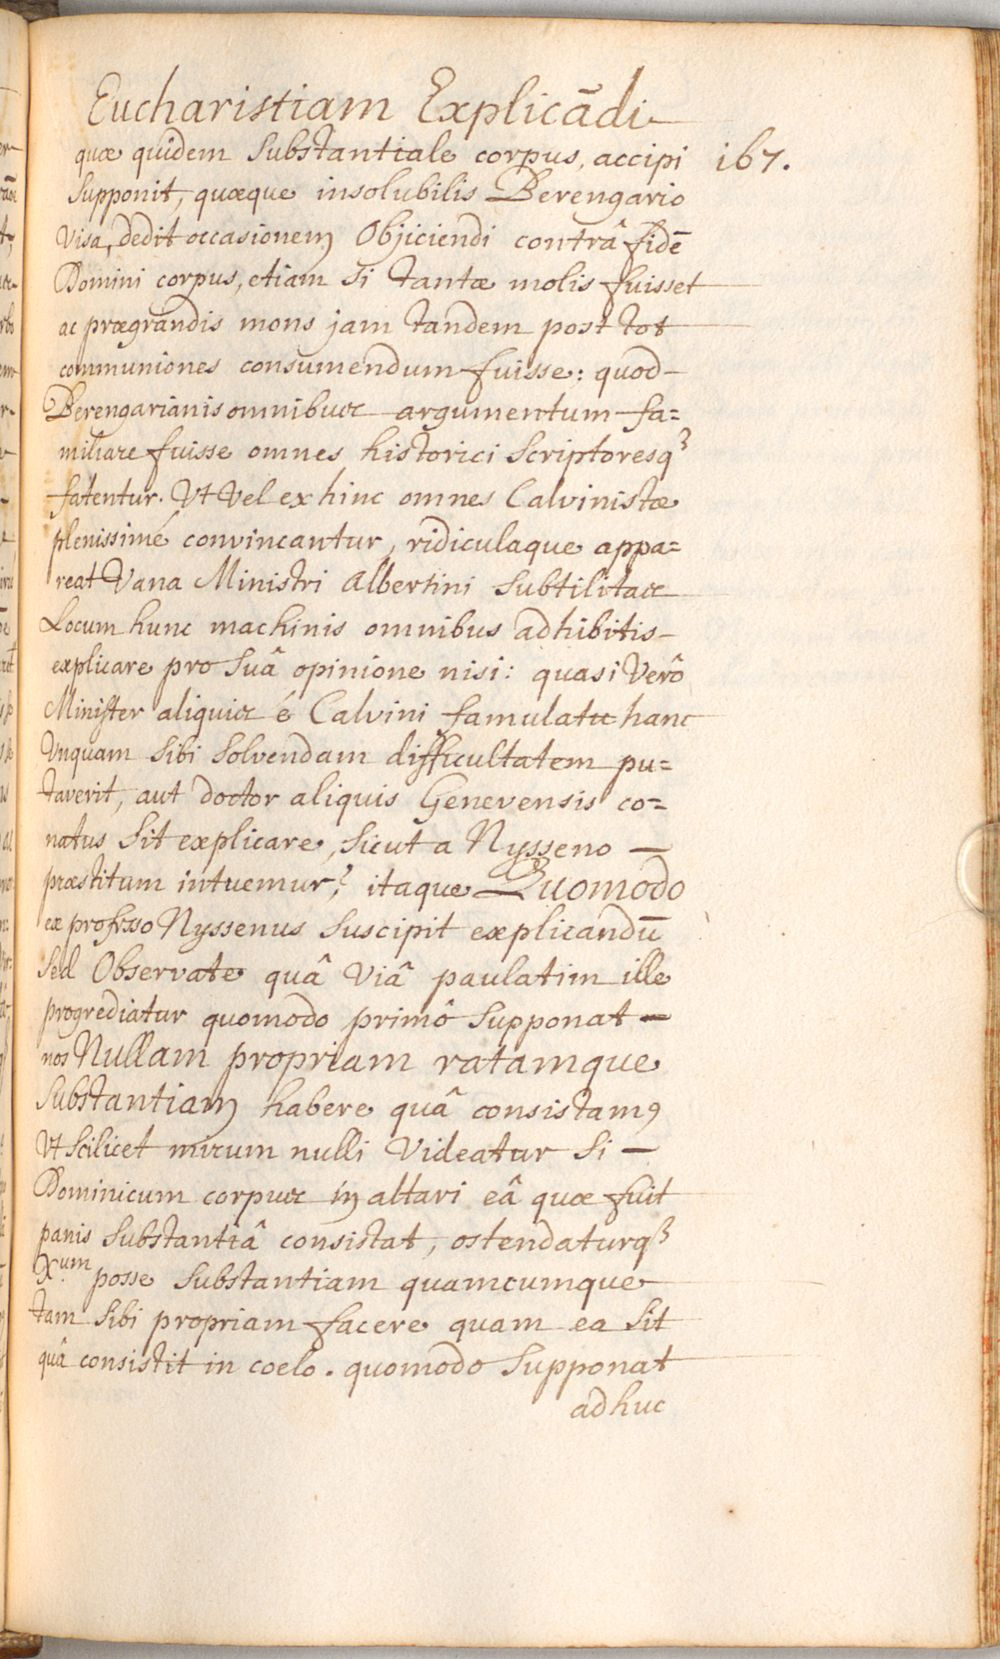 Eucharistiam Explicādi
quæ quidem Substantiale corpus, accipi 167.
Supponit, quæque insolubilis Berengario
Visa, dedit occasionem Objiciendi contrâ fidē
Domini corpus, etiam si tantæ molis fuisset
ac prægrandis mons jam tandem post tot
communiones consumendum fuisse: quod
Berengarianis omnibus argumentum fa=
miliare fuisse omnes historici Scriptoresqꝫ
fatentur. Ut Vel ex hinc omnes Calvinistæ
plenissimé convincantur, ridiculaque appa=
reat Vana Ministri Albertini Subtilitas
Locum hunc machinis omnibus adhibitis
explicare pro Suâ opinione nisi: quasi Verô
Minister aliquis é Calvini famulatu hanc
Vnquam Sibi Solvendam difficultatem pu=
taverit, aut doctor aliquis Genevensis co=
natus Sit explicare, Sicut a Nysseno —
præstitum intuemur? itaque Quomodo
ex professo Nyssenus Suscipit explicandū
Sed Observate quâ Viâ paulatim ille
progrediatur quomodo primô Supponat —
nos Nullam propriam ratamque
Substantiam habere quâ consistamꝰ
Vt Scilicet mirum nulli Videatur Si —
Dominicum corpus in altari eâ quæ fuit
panis Substantiâ consistat, ostendaturqꝫ
Xum posse Substantiam quamcumque
tam Sibi propriam facere quam ea Sit
quâ consistit in coelo. quomodo Supponat
adhuc